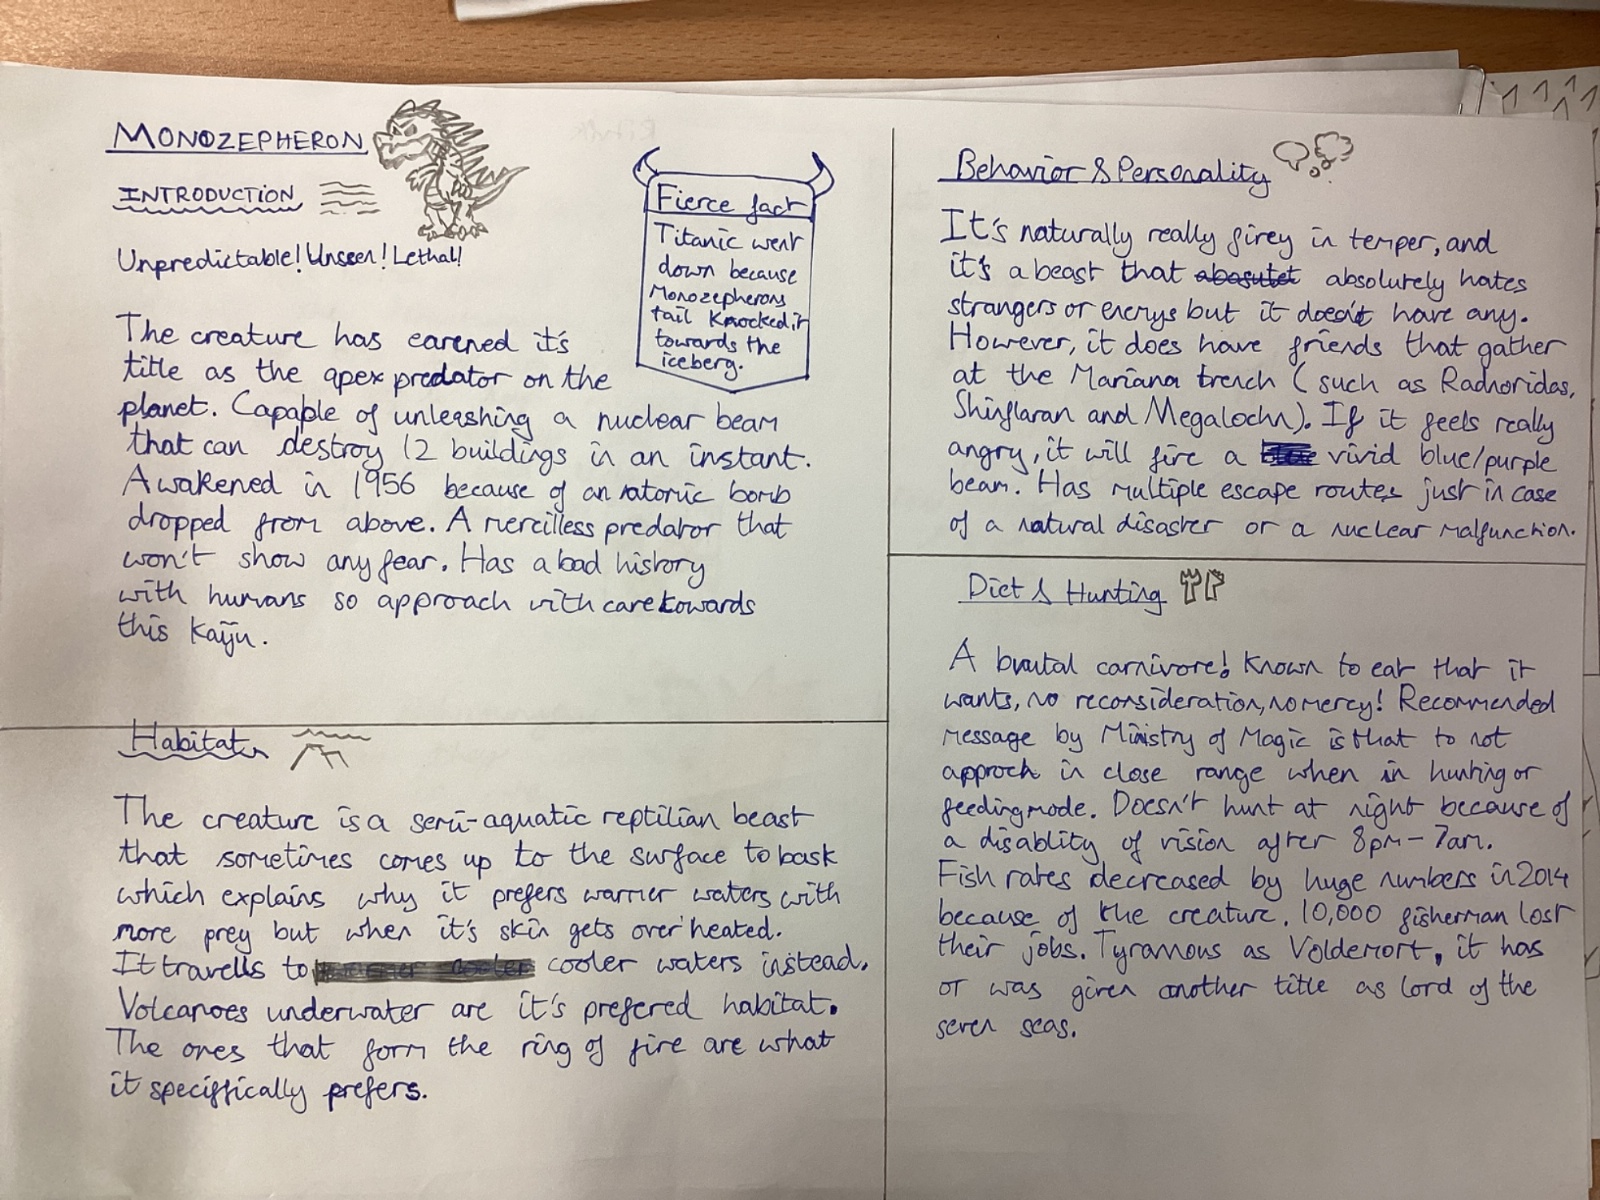 MONOZEPHERON
INTRODUCTION
Unpredictable! Unseen! Lethal!
The creature has earened it's
title as the apex predator on the
planet. Capable of unleashing a nuclear beam
that can destroy 12 buildings in an instant.
Awakened in 1956 because of an atomic bomb
dropped from above. A merciless predator that
won't show any fear. Has a bad history
with humans so approach with care towards
this Kaiju.
Fierce fact
Titanic went
down because
Monozepherons
tail Knocked it
towards the
iceberg.
Habitat
The creature is a semi-aquatic reptilian beast
that sometimes comes up to the surface to bask
which explains why it prefers warmer waters with
more prey but when it's skin gets over heated.
It travells to cooler waters instead.
Volcanoes underwater are it's prefered habitat.
The ones that form the ring of fire are what
it speciffically prefers.
Behavior & Personality
It's naturally really firey in temper, and
it's a beast that abasutet absolutely hates
strangers or enemys but it doesn't have any.
However, it does have friends that gather
at the Mariana trench (such as Radnoridas,
Shinflaran and Megalochn). If it feels really
angry, it will fire a vivid blue/purple
beam. Has multiple escape routes just in case
of a natural disaster or a nuclear malfunction.
Diet & Hunting
A brutal carnivore! Known to eat that it
wants, no reconsideration, no mercy! Recommended
message by Ministry of Magic is that to not
approch in close range when in hunting or
feeding mode. Doesn't hunt at night because of
a disablity of vision after 8pm - 7am.
Fish rates decreased by huge numbers in 2014
because of the creature. 10,000 fisherman lost
their jobs. Tyrannous as Voldemort, it has
or was given another title as lord of the
seven seas.